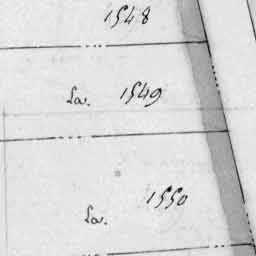 1548
La. 1549
1550
La.